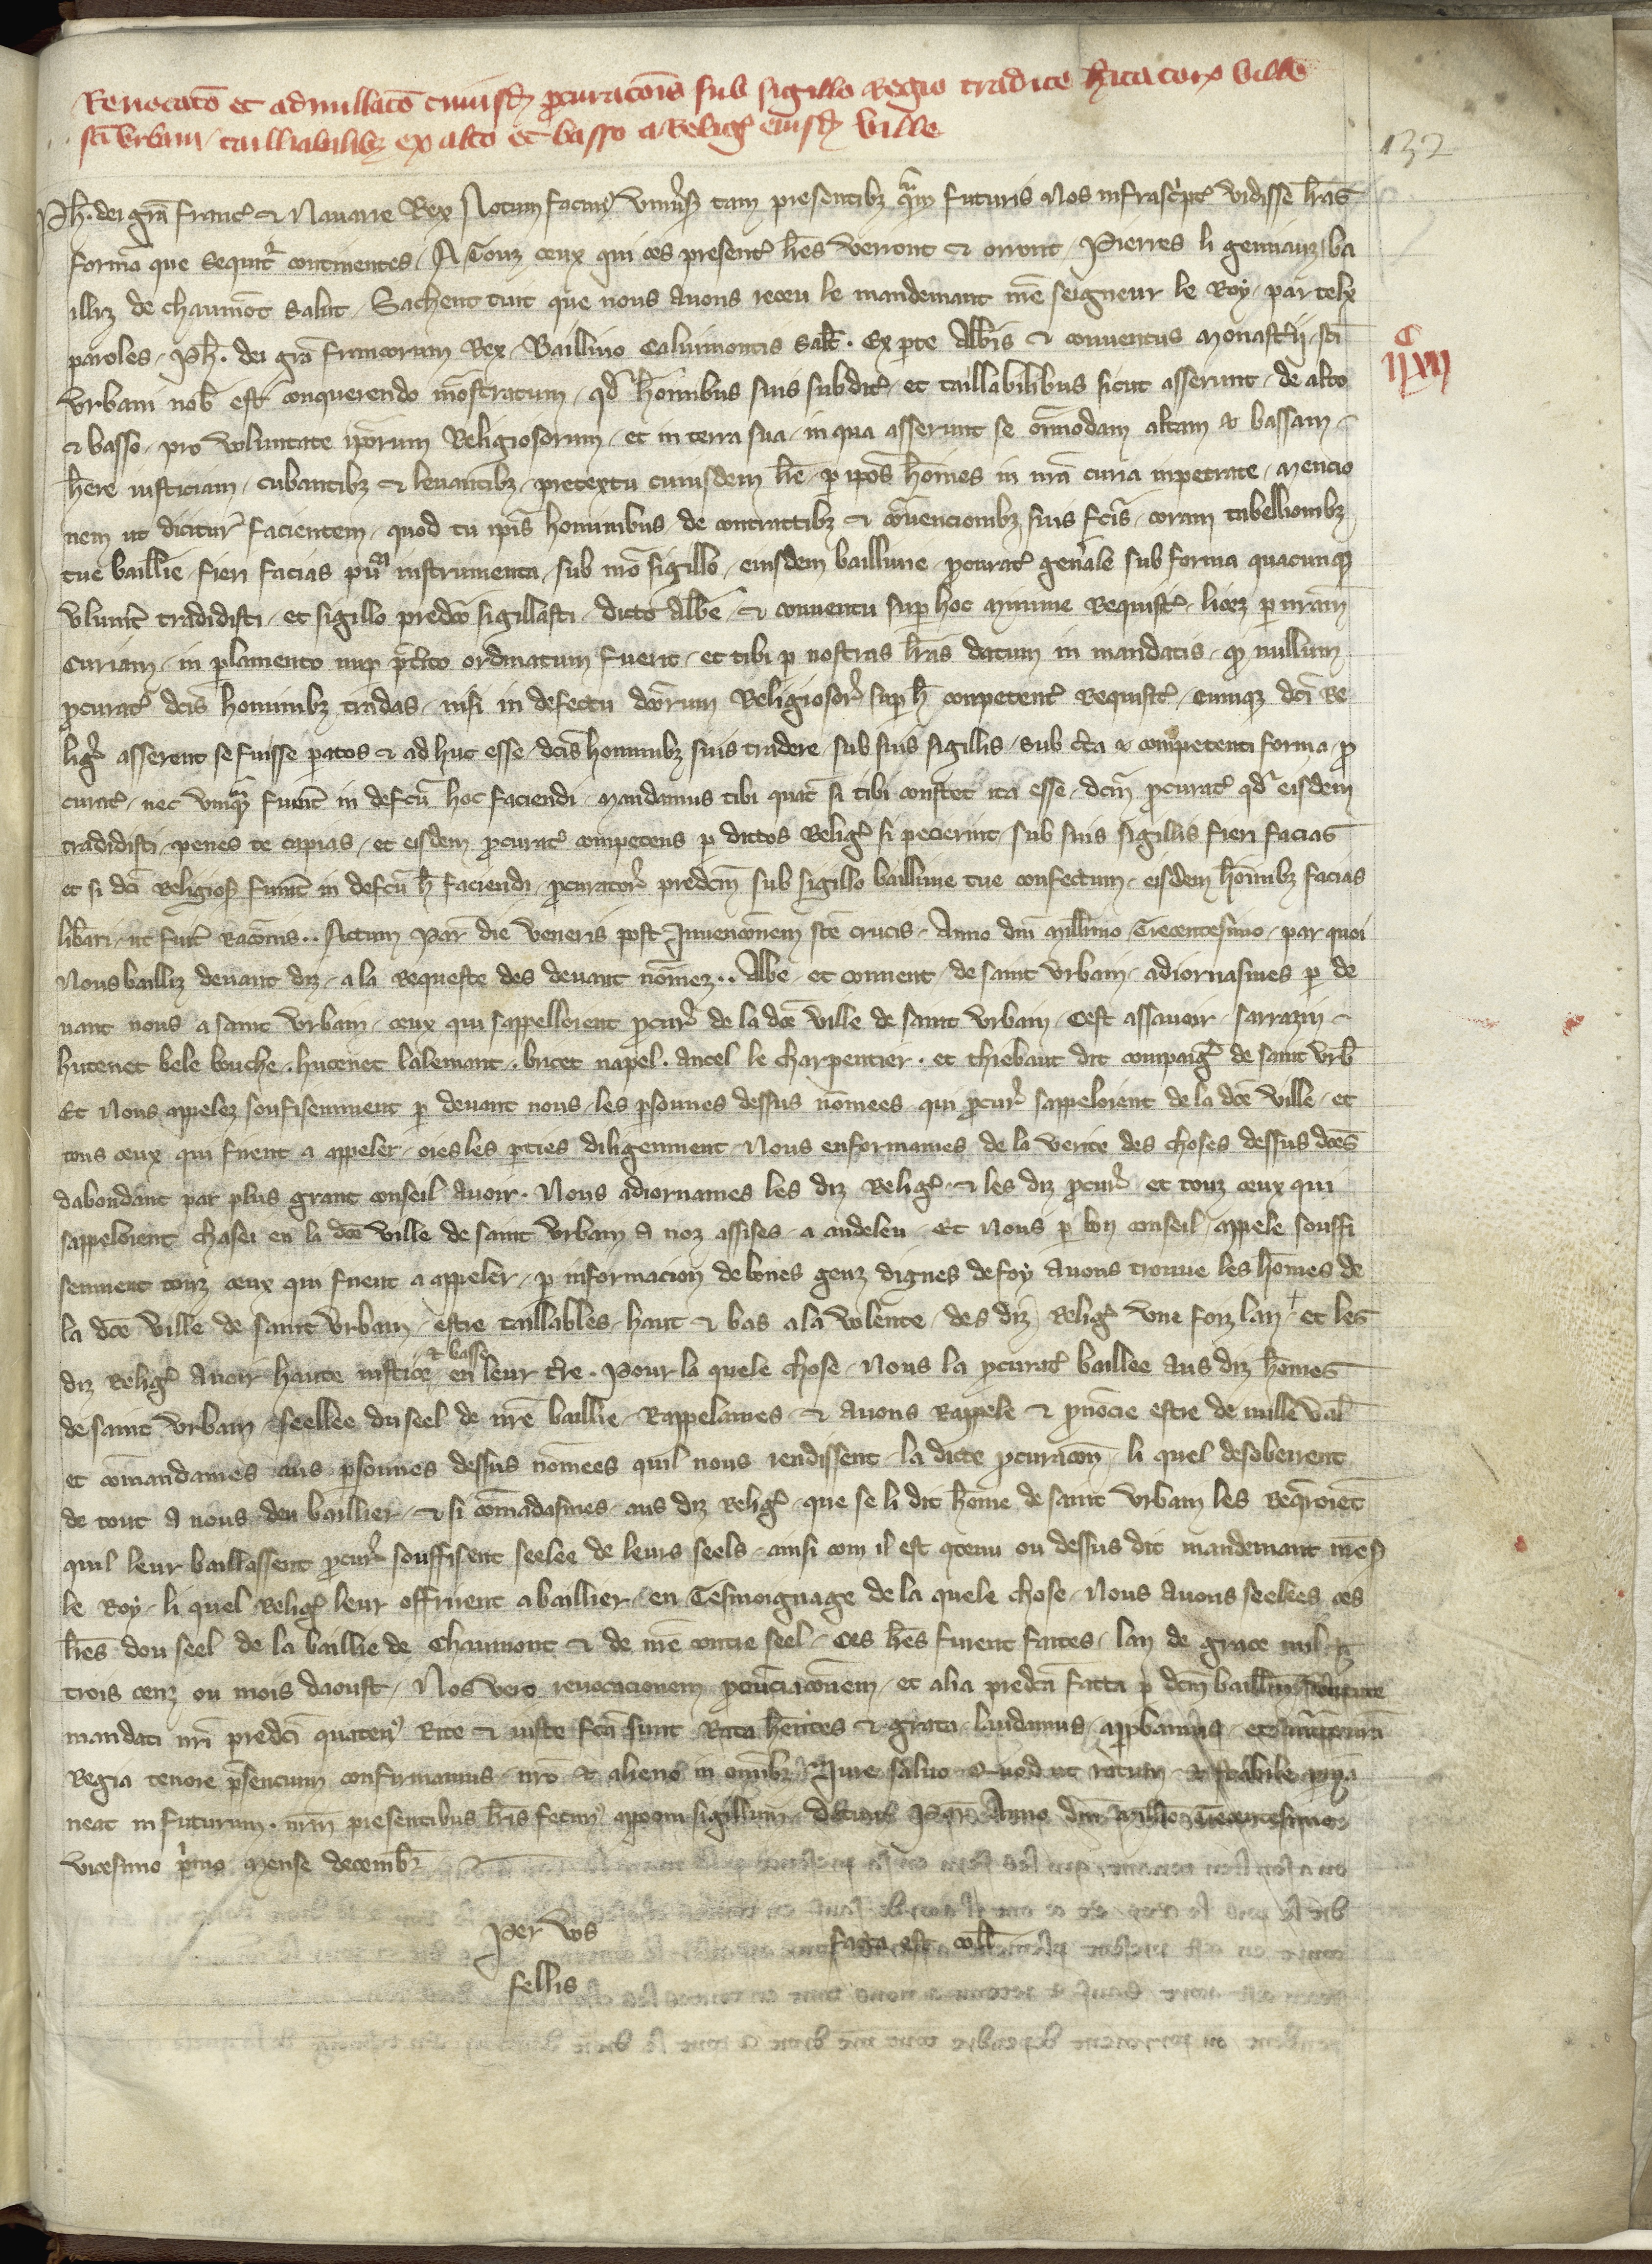 Revocatō et adnullatō cuiusdȝ ꝓcuracōis sub sigillo Regio tradite hītatoꝝ ville
sc̄i Vrbani talliabilibȝ ex alto et basso a Religꝭ eiusdȝ ville
132
Ph̄. dei grā Francꝭ & Nauarre Rex Notum facimꝰ vniuersꝭ tam presentibȝ quam futuris Nos infrascptꝭ vidisse lr̄as
formā que sequitur continentes. A Touz ceux qui ces presentꝭ lr̄es verront & orront Pierres li ba
illiz de chaumōt salut. Sachent tuit que nous auons receu le mandemant nr̄e seigneur le Roy par telx
paroles. Ph̄. dei grā francorum Rex Balliuo Caluimontis salt̄. Ex parte Abbīs & conuentus monastˀij sc̄i
C
IIXVII
Vrbani nob̄ est conquerendo mōstratum qd̄ hōinibus suis subditꝭ et taillabilibus sicut asserunt de alto
& basso pro voluntate ip̄orum Religiosorum et in terra sua in qua asserunt se om̄imodam altam & bassam
hēre iusticiam cubantibȝ & leuantibȝ pretextu cuiusdem lr̄e ꝑ ip̄os hōines in nr̄a curia inpetrate mencio
nem ut dicitur facientem quod tu ip̄is hominibus de contractibȝ & cōuencionibȝ suis fc̄is coram tabellionibȝ
tue baillie fieri facias instrumenta sub nr̄o sigillo eiusdem balliuie ꝓcuratꝭ gen̄ale sub forma quacunqȝ
volunt̄ tradidisti et sigillo predc̄o sigillasti dicto Abbī & conuentu suꝑ hoc minime Requisitꝭ licet ꝑ nr̄am
Curiam in ꝑlamento nuꝑ ordinatum fuerit et tibi ꝑ nostras lr̄as datum in mandatis qd̄ nullum
ꝓcuratꝭ dc̄is hominibȝ tradas nisi in defectu dc̄orum Religiosorꝭ suꝑ h̄ conpetentꝭ Requisitꝭ Cumqȝ dc̄i Re
ligꝭ asserent se fuisse ꝑatos & ad huc esse dc̄is hominibȝ suis tradere sub suis sigillis sub cˀta & competenti forma ꝓ
curatꝭ nec vnquam fuerīt in defcū hoc faciendi Mandamus tibi quatˀ si tibi constet ita esse dc̄m ꝓcuratꝭ qd̄ eisdem
tradidisti penes te capias et eisdem ꝓcuratꝭ competens ꝑ dictos Religꝭ si pecierint sub suis sigillis fieri facias
et si dc̄i Religiosꝭ fuerīt in defcū h̄ faciendi ꝓcuratorꝭ predc̄m sub sigillo balliuie tue confectum eisdem hōinibȝ facias
lib̄ari ut fuerit racōnis.. Actum Parꝭ die veneris post Inuencōnem sc̄e crucis Anno dn̄i millīmo Trecentesimo par quoi
Nous bailliz deuant diz a la requeste des deuant nōmez.. Abbe et couuent de saint Vrbain adiornasmes ꝑ de
uant nous a saint Vrbain ceux qui sappelloient ꝓcurꝭ de la dc̄e ville de saint Vrbain Cest assauoir sarrazin
hutenet bele bouche. hutenet lalemant. bricet napel. Ancel le charpentier. et thiebaut dit compaigꝭ de saint Vrb̄
Et Nous appelez soufisemment ꝑ deuant nous les ꝑsonnes dessus nōmees qui ꝓcurꝭ sappeloient de la dc̄e ville et
tous ceux qui furent a appeler oies les ꝑties diligenment Nous enformames de la verite des choses dessus dc̄es
dabondant par plus grant conseil auoir. Nous adiornames les diz Religꝭ & les diz ꝓcurꝭ et touz ceux qui
sappeloient chasei en la dc̄e ville de saint Vrbain a noz assises a andeleu Et Nous ꝑ bon conseil appele souffi
senment touz ceux qui furent a appeler ꝑ informacion de bones genz dignes de foy auons trouue les hōmes de
la dc̄e ville de saint Vrbain estre taillables haut & bas a la volente des diz Religꝭ vne foiz lan et les
diz Religꝭ auoir haute iustice & basse en leur tr̄e. Pour la quele chose Nous la ꝓcuratꝭ baillee aus diz hōmes
de saint Vrbain seellee du seel de nr̄e baillie Rappelames & auons Rappele & ꝓnōcie estre de nulle val̄
et cōmandames aus ꝑsonnes dessus nōmees quil nous rendissent la dicte ꝓcuracōn li quel desobeirent
de tout a nous deu baillier & si cōmādasmes aus diz Religꝭ que se li dit hōme de saint Vrbain les Reqroiēt
quil leur baillassent ꝓcurꝭ souffisent seelee de leurs seels ainsi com il est ꝯtenu ou dessus dit mandemant nr̄e sꝭ
le Roy li quel Religꝭ leur offrirent a baillier en Tesmoignage de la quele chose Nous auons seelees ces
lr̄es dou seel de la baillie de Chaumont & de nr̄e contre seel Ces lr̄es furent faites lan de grace mil
trois cenz ou mois daoust. Nos vero reuocacionem ꝓnūciacōnem et alia predc̄a facta ꝑ dc̄m bailliuū virtute
mandati nr̄i predc̄i quatenꝰ Rite & iuste fc̄a sunt Rata hēntes & grata laudamus aꝓbamus et
Regia tenore p̄sencium confirmamus nr̄o & alieno in om̄ibȝ Iure saluo Quod ut ratum & stabile ꝑma
neat in futurum. nr̄m presentibus lr̄is fecimꝰ apponi sigillum Actum Parꝭ Anno dn̄i millīo Trecentesimo
vicesimo p̄mo Mense decembꝭ
Per vos
fellis
facta est coll̄